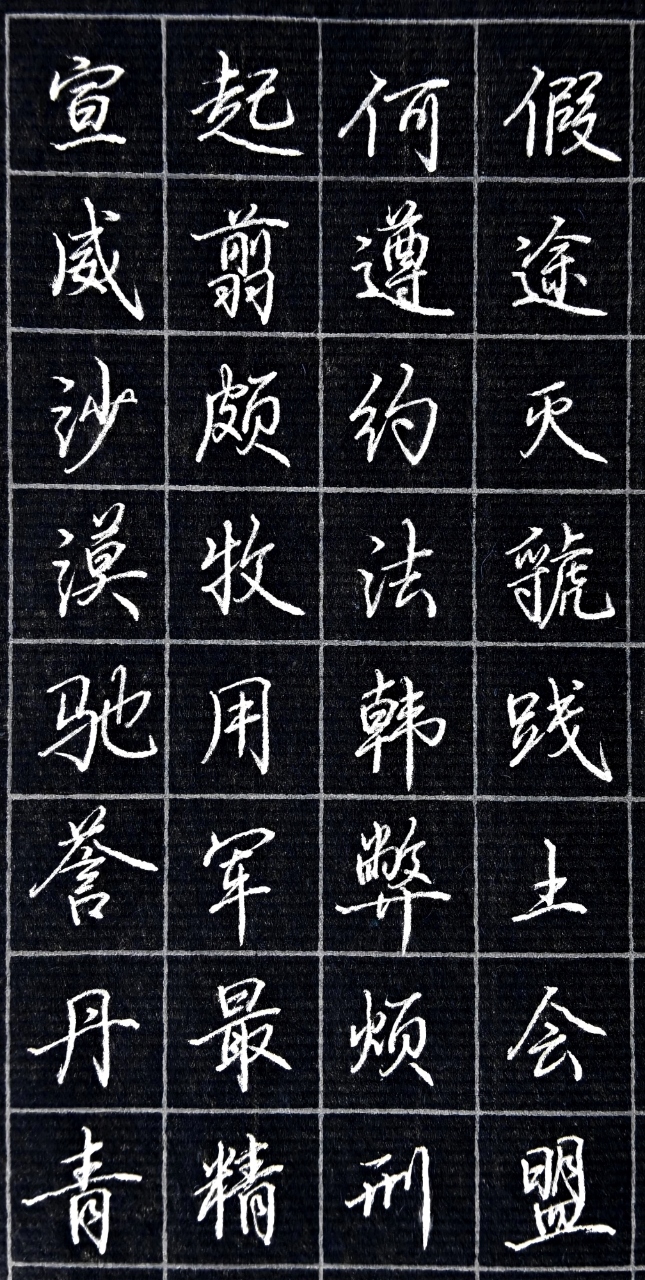 假途灭虢践土会盟
何遵约法韩弊烦刑
起翦颇牧用军最精
宣威沙漠驰誉丹青